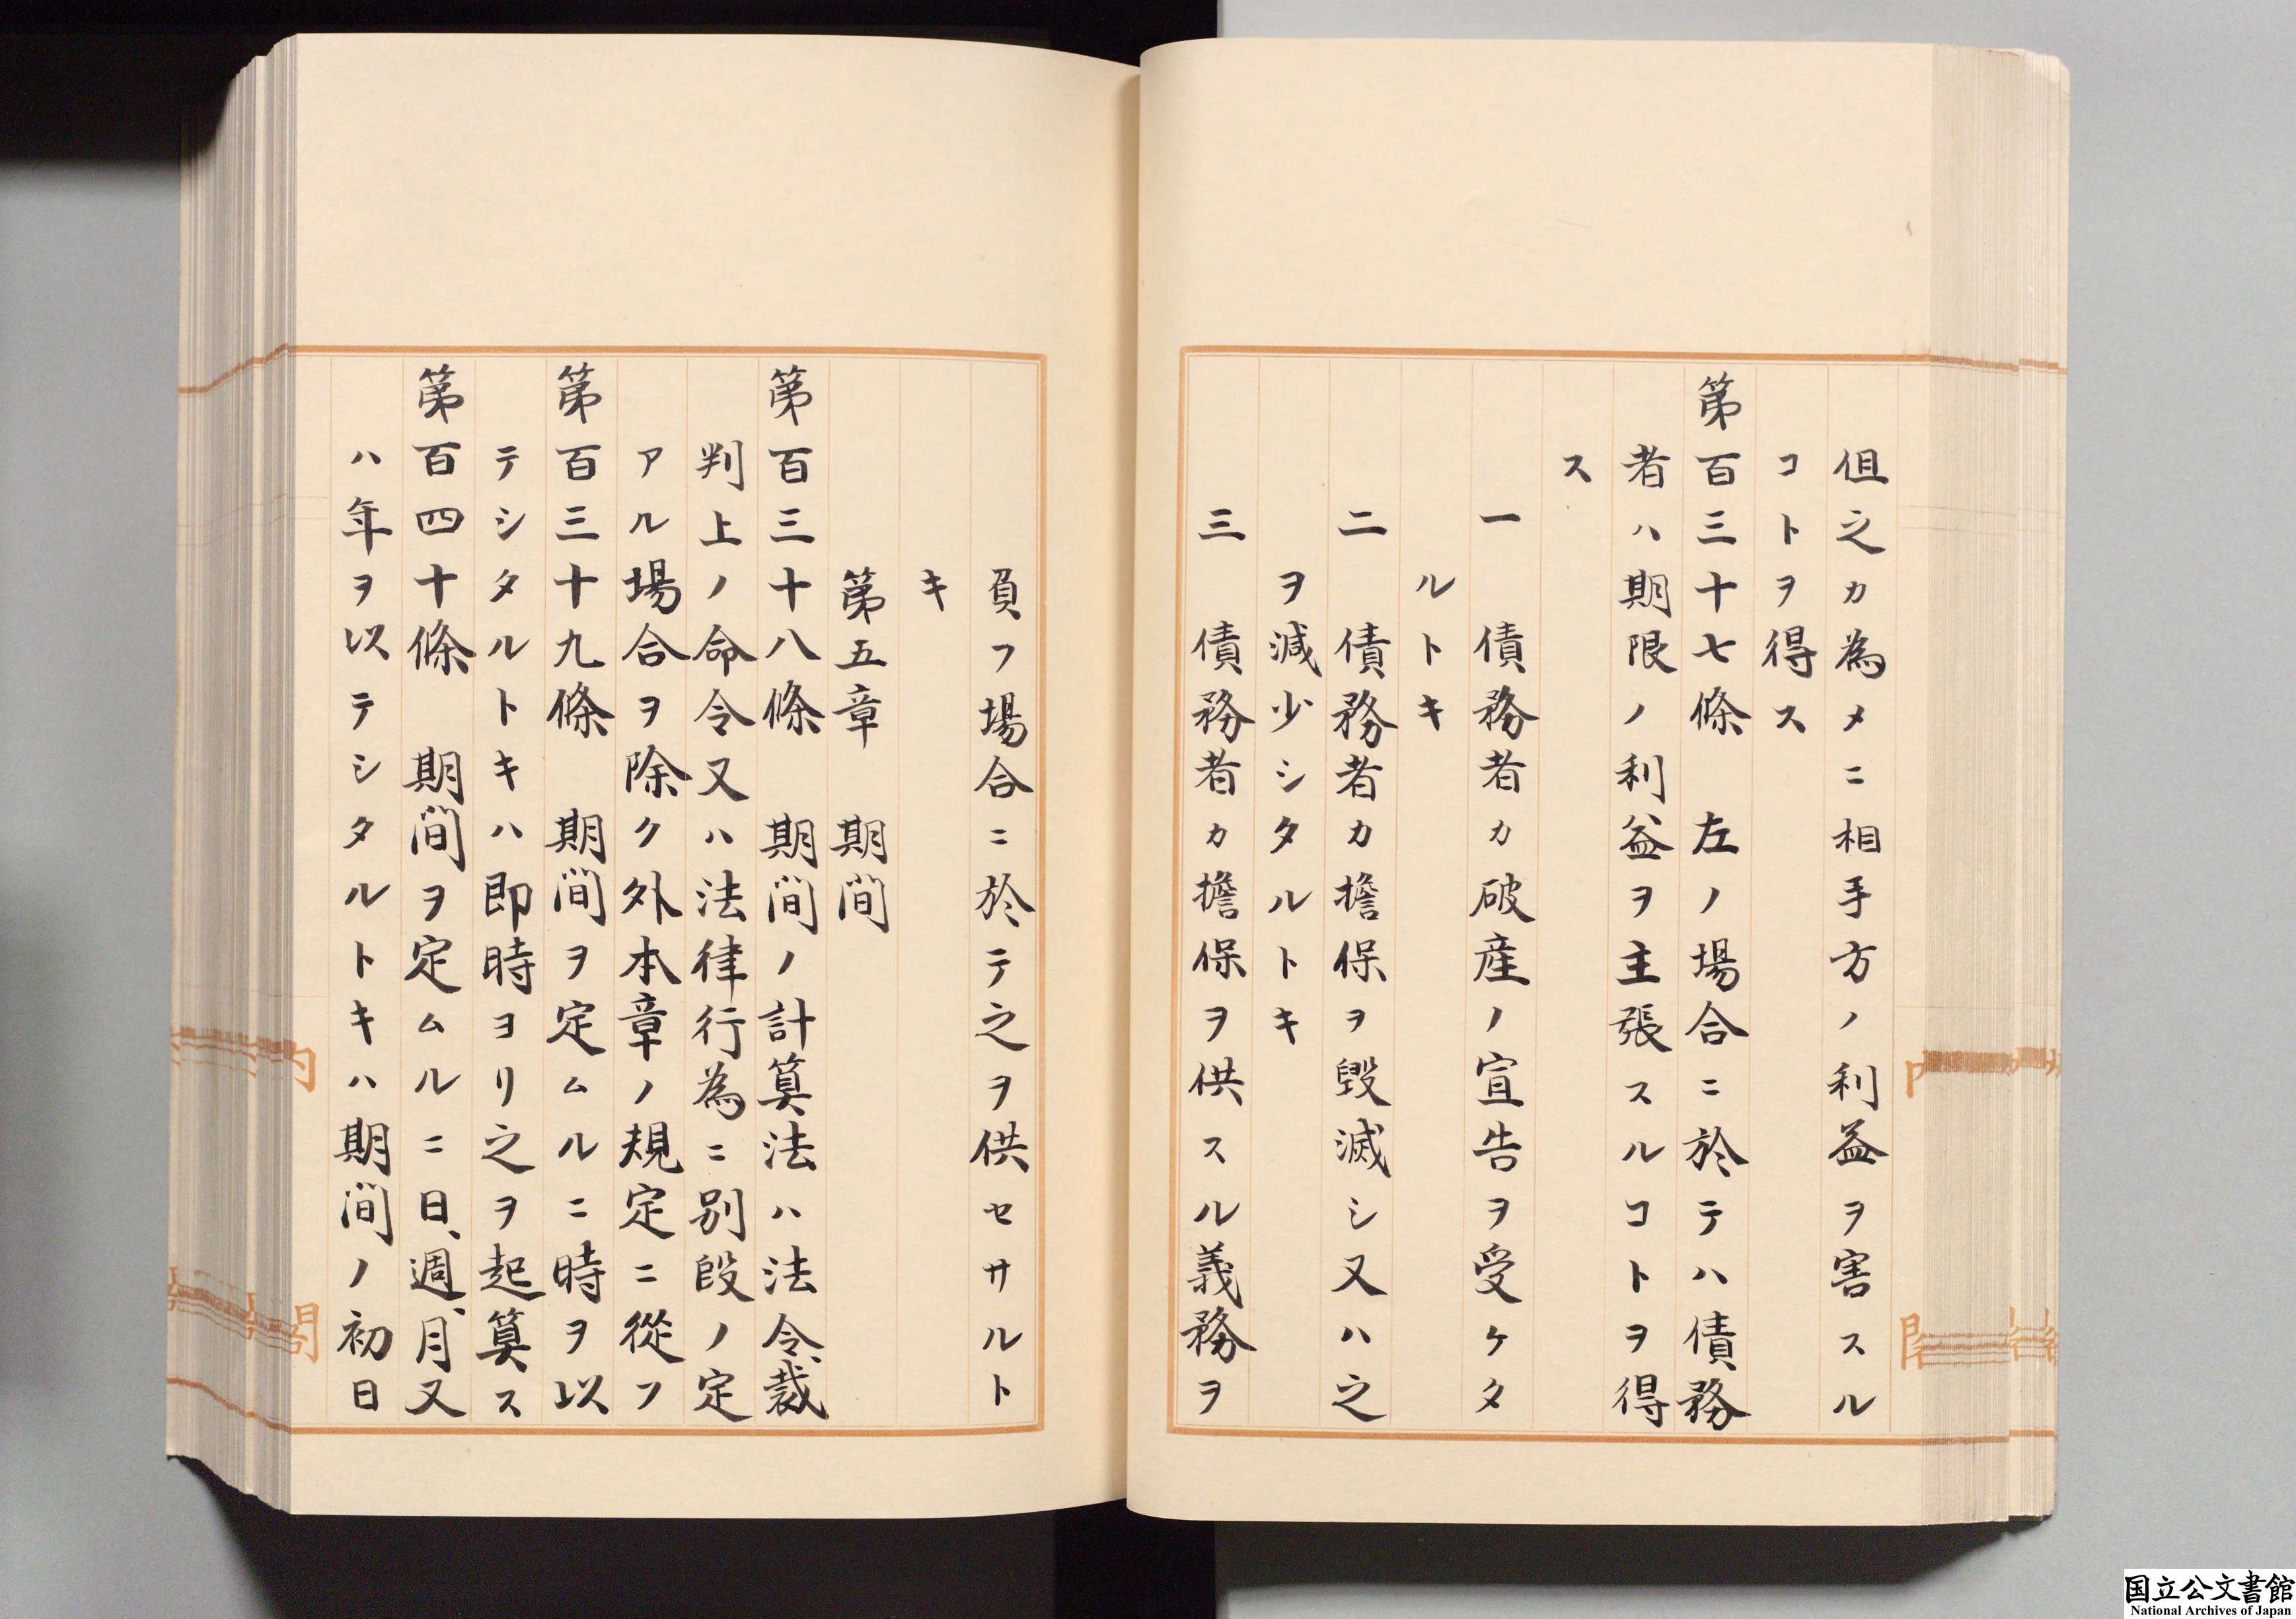 但之カ為メニ相手方ノ利益ヲ害スル
コトヲ得ス
第百三十七條　左ノ場合ニ於テハ債務
者ハ期限ノ利益ヲ主張スルコトヲ得
ス
一　債務者カ破産ノ宣告ヲ受ケタ
ルトキ
二　債務者カ擔保ヲ毀滅シ又ハ之
ヲ減少シタルトキ
三　債務者カ擔保ヲ供スル義務ヲ
負フ場合ニ於テ之ヲ供セサルト
キ
第五章　期間
第百三十八條　期間ノ計算法ハ法令、裁
判上ノ命令又ハ法律行為ニ別段ノ定
アル場合ヲ除ク外本章ノ規定ニ從フ
第百三十九條　期間ヲ定ムルニ時ヲ以
テシタルトキハ即時ヨリ之ヲ起算ス
第百四十條　期間ヲ定ムルニ日、週、月又
ハ年ヲ以テシタルトキハ期間ノ初日
国立公文書館
National Archives of Japan